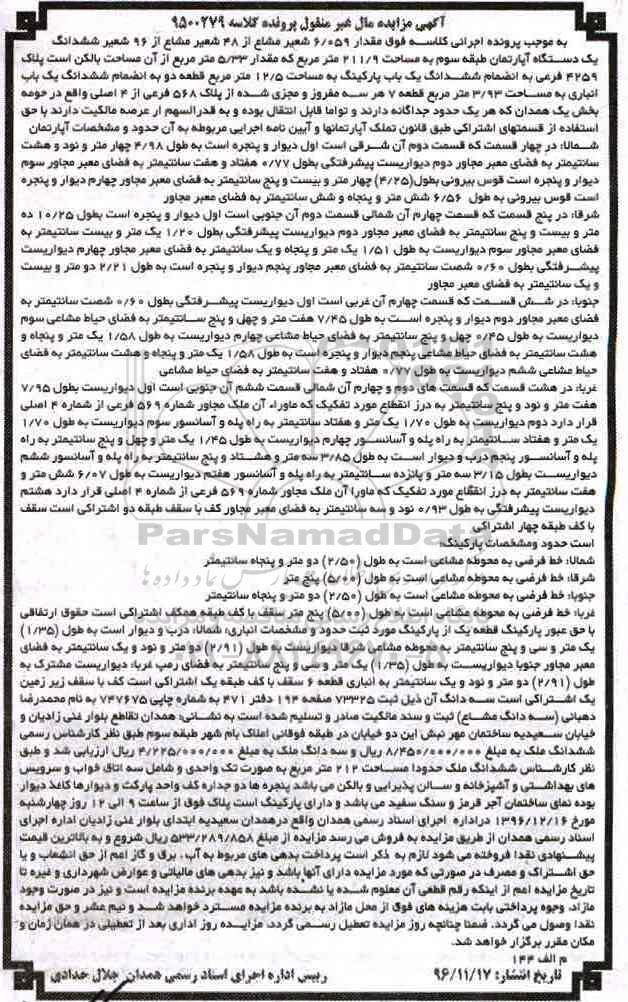 آگهی مزایده مال غیر منقول پرونده کلاسه ۹۵۰۰۲۷۹
به موجب پرونده اجرائی کلاسه فوق مقدار ۶/۰۵۹ شعیر مشاع از ۴۸ شعیر مشاع از ۹۶ شعیر ششدانگ
یک دستگاه آپارتمان طبقه سوم به مساحت ۲۱۱/۹ متر مربع که مقدار ۵/۳۳ متر مربع از آن مساحت بالکن است پلاک
۴۲۵۹ فرعی به انضمام ششدانگ یک باب پارکینگ به مساحت ۱۲/۵ متر مربع قطعه دو به انضمام ششدانگ یک باب
انباری به مساحت ۳/۹۳ متر مربع قطعه ۷ هر سه مفروز و مجزی شده از پلاک ۵۶۸ فرعی از ۴ اصلی واقع در حومه
بخش یک همدان که هر یک حدود جداگانه دارند و تواما قابل انتقال بوده و به قدرالسهم از عرصه مالکیت دارند با حق
استفاده از قسمتهای اشتراکی طبق قانون تملک آپارتمانها و آیین نامه اجرایی مربوطه به آن حدود و مشخصات آپارتمان
شمالا: در چهار قسمت که قسمت دوم آن شرقی است اول دیوار و پنجره است به طول ۴/۹۸ چهار متر و نود و هشت
سانتیمتر به فضای معبر مجاور دوم دیواریست پیشرفتگی بطول ۰/۷۷ هفتاد و هفت سانتیمتر به فضای معبر مجاور سوم
دیوار و پنجره است قوس بیرونی بطول (۴/۲۵) چهار متر و بیست و پنج سانتیمتر به فضای معبر مجاور چهارم دیوار و پنجره
است قوس بیرونی به طول ۶/۵۶ شش متر و پنجاه و شش سانتیمتر به فضای معبر مجاور
شرقا: در پنج قسمت که قسمت چهارم آن شمالی قسمت دوم آن جنوبی است اول دیوار و پنجره است بطول ۱۰/۲۵ ده
متر و بیست و پنج سانتیمتر به فضای معبر مجاور دوم دیواریست پیشرفتگی بطول ۱/۲۰ یک متر و بیست سانتیمتر به
فضای معبر مجاور سوم دیواریست به طول ۱/۵۱ یک متر و پنجاه و یک سانتیمتر به فضای معبر مجاور چهارم دیواریست
پیشرفتگی بطول ۰/۶۰ شصت سانتیمتر به فضای معبر مجاور پنجم دیوار و پنجره است به طول ۲/۲۱ دو متر و بیست
و یک سانتیمتر به فضای معبر مجاور
جنوبا: در شش قسمت که قسمت چهارم آن غربی است اول دیواریست پیشرفتگی بطول ۰/۶۰ شصت سانتیمتر به
فضای معبر مجاور دوم دیوار و پنجره است به طول ۷/۴۵ هفت متر و چهل و پنج سانتیمتر به فضای حیاط مشاعی سوم
دیواریست به طول ۰/۴۵ چهل و پنج سانتیمتر به فضای حیاط مشاعی چهارم دیواریست به طول ۱/۵۸ یک متر و پنجاه و
هشت سانتیمتر به فضای حیاط مشاعی پنجم دیوار و پنجره است به طول ۱/۵۸ یک متر و پنجاه و هشت سانتیمتر به فضای
حیاط مشاعی ششم دیواریست به طول ۰/۷۷ هفتاد و هفت سانتیمتر به فضای حیاط مشاعی
غربا: در هشت قسمت که قسمت های دوم و چهارم آن شمالی قسمت ششم آن جنوبی است اول دیواریست بطول ۷/۹۵
هفت متر و نود و پنج سانتیمتر به درز انقطاع مورد تفکیک که ماوراء آن ملک مجاور شماره ۵۶۹ فرعی از شماره ۴ اصلی
قرار دارد دوم دیواریست به طول ۱/۷۰ یک متر و هفتاد سانتیمتر به راه پله و آسانسور سوم دیواریست به طول ۱/۷۰
یک متر و هفتاد سانتیمتر به راه پله و آسانسور چهارم دیواریست به طول ۱/۴۵ یک متر و چهل و پنج سانتیمتر به راه
پله و آسانسور پنجم درب و دیوار است به طول ۳/۸۵ سه متر و هشتاد و پنج سانتیمتر به راه پله و آسانسور ششم
دیواریست بطول ۳/۱۵ سه متر و پانزده سانتیمتر به راه پله و آسانسور هفتم دیواریست بطول ۶/۰۷ شش متر و
هفت سانتیمتر به درز انقطاع مورد تفکیک که ماورا آن ملک مجاور شماره ۵۶۹ فرعی از شماره ۴ اصلی قرار دارد هشتم
دیواریست پیشرفتگی به طول ۰/۹۳ نود و سه سانتیمتر به فضای معبر مجاور کف با سقف طبقه دو اشتراکی است سقف
با کف طبقه چهار اشتراکی
است حدود ومشخصات پارکینگ:
شمالا: خط فرضی به محوطه مشاعی است به طول (۲/۵۰) دو متر و پنجاه سانتیمتر
شرقا: خط فرضی به محوطه مشاعی است به طول (۵/۰۰) پنج متر
جنوبا: خط فرضی به محوطه مشاعی است به طول (۲/۵۰) دو متر و پنجاه سانتیمتر
غربا: خط فرضی به محوطه مشاعی است به طول (۵/۰۰) پنج متر سقف با کف طبقه همکف اشتراکی است حقوق ارتفاقی
با حق عبور پارکینگ قطعه یک از پارکینگ مورد ثبت حدود و مشخصات انباری: شمالا: درب و دیوار است به طول (۱/۳۵)
یک متر و سی و پنج سانتیمتر به محوطه مشاعی شرقا دیواریست به طول (۲/۹۱) دو متر و نود و یک سانتیمتر به فضای
معبر مجاور جنوبا دیواریست به طول (۱/۳۵) یک متر و سی و پنج سانتیمتر به فضای رمپ غربا: دیواریست مشترک به
طول (۲/۹۱) دو متر و نود و یک سانتیمتر به انباری قطعه ۶ سقف با کف طبقه یک اشتراکی است کف با سقف زیر زمین
یک اشتراکی است سه دانگ آن ذیل ثبت ۷۳۳۲۵ صفحه ۱۹۴ دفتر ۴۷۱ به شماره چاپی ۷۴۷۶۷۵ به نام محمدرضا
دهبانی (سه دانگ مشاع) ثبت و سند مالکیت صادر و تسلیم شده است به نشانی: همدان تقاطع بلوار غنی زادیان و
خیابان سعیدیه ساختمان مهر نبش این دو خیابان در طبقه فوقانی املاک بام شهر طبقه سوم طبق نظر کارشناس رسمی
ششدانگ ملک به مبلغ ۸/۴۵۰/۰۰۰/۰۰۰ ریال و سه دانگ ملک به مبلغ ۴/۲۲۵/۰۰۰/۰۰۰ ریال ارزیابی شد و طبق
نظر کارشناس ششدانگ ملک حدودا مساحت ۲۱۲ متر مربع به صورت تک واحدی و شامل سه اتاق خواب و سرویس
های بهداشتی و آشپزخانه و سالن پذیرایی و بالکن می باشد پنجره ها دو جداره کف واحد پارکت و دیوارها کاغذ دیوار
بوده نمای ساختمان آجر قرمز و سنگ سفید می باشد و دارای پارکینگ است پلاک فوق از ساعت ۹ الی ۱۲ روز چهارشنبه
مورخ ۱۳۹۶/۱۲/۱۶ دراداره اجرای اسناد رسمی همدان واقع درهمدان سعیدیه ابتدای بلوار غنی زادیان اداره اجرای
اسناد رسمی همدان از طریق مزایده به فروش می رسد مزایده از مبلغ ۵۳۳/۲۸۹/۸۵۸ ریال شروع و به بالاترین قیمت
پیشنهادی نقدا فروخته می شود لازم به ذکر است پرداخت بدهی های مربوط به آب ، برق و گاز اعم از حق انشعاب و یا
حق اشتراک و مصرف در صورتی که مورد مزایده دارای آنها باشد و نیز بدهی های مالیاتی و عوارض شهرداری و غیره تا
تاریخ مزایده اعم از اینکه رقم قطعی آن معلوم شده یا نشده باشد به عهده برنده مزایده است و نیز در صورت وجود
مازاد، وجوه پرداختی بابت هزینه های فوق از محل مازاد به برنده مزایده مسترد خواهد شد و نیم عشر و حق مزایده
نقدا وصول می گردد، ضمنا چنانچه روز مزایده تعطیل رسمی گردد، مزایده روز اداری بعد از تعطیلی در همان زمان و
مکان مقرر برگزار خواهد شد.
م الف ۱۴۴
تاریخ انتشار: ۹۶/۱۱/۱۷ رییس اداره اجرای اسناد رسمی همدان جلال حدادی
ParsNamadData